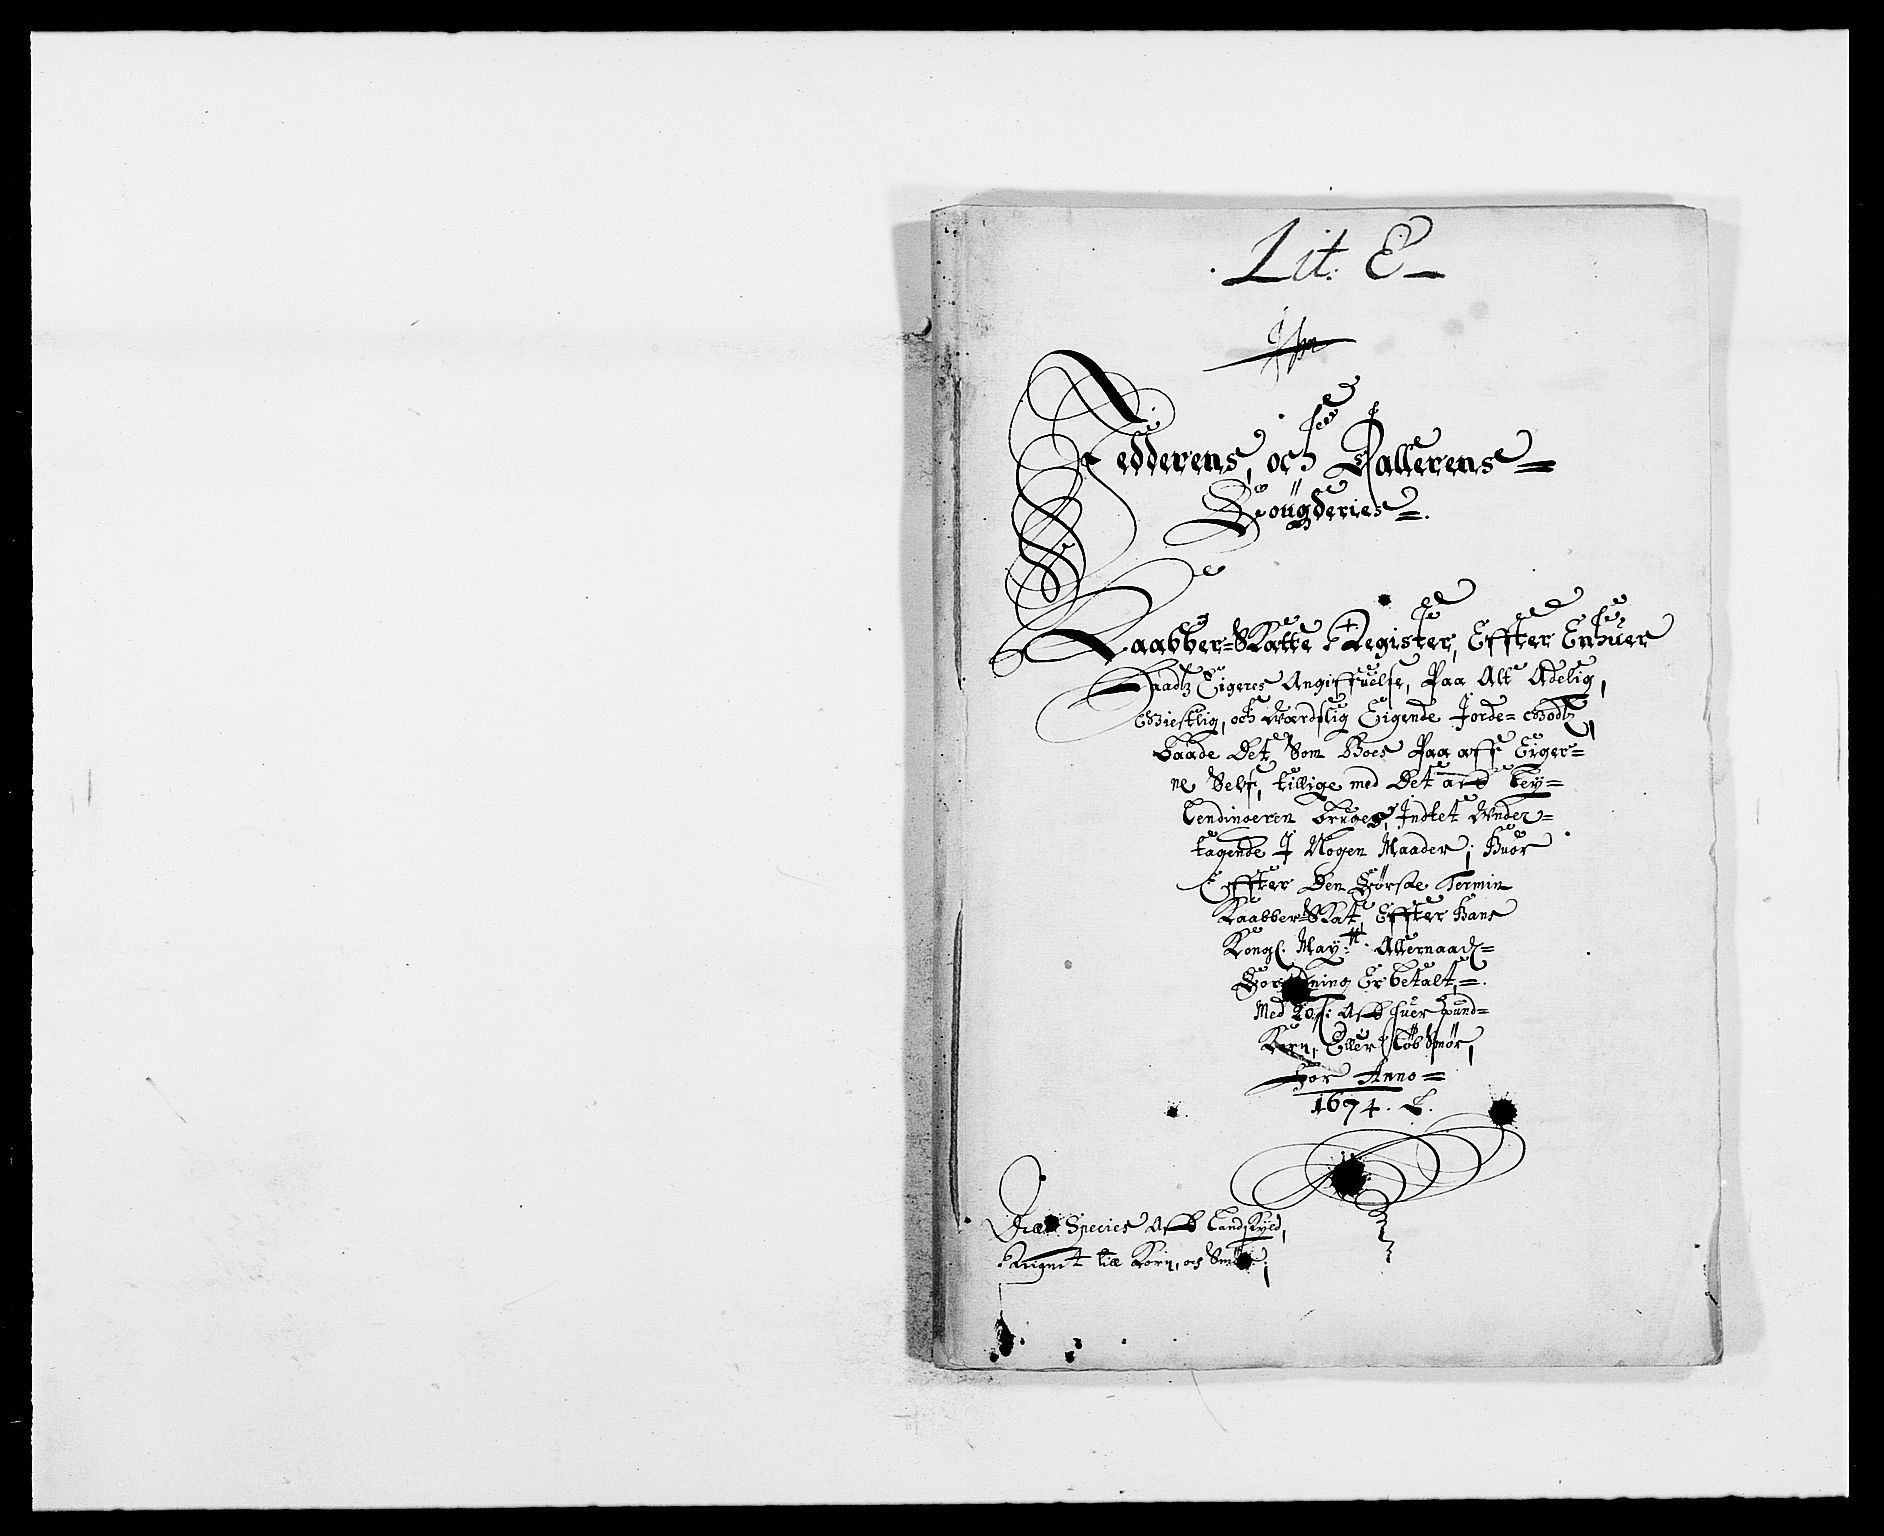 Lit: E
Jedderens, och Dallerens
Fougderies
Kaabber-Skatte Register, Effter Enhuer
Jordz Eigeres Angiffuelse, Paa Alt Adelig,
Giestlig, och Werdslig Eigende Jorde-Godtz,
baade Det Som Boes Paa aff Eiger-
ne Self, tillige med Det aff Ley-
lendingeren bruges, Indtet Vnder-
tagende J Nogen Maader, Huor
Effter Den Første Termin
Kaabber-Skat, Effter Hans
Kongl. May:tt Allernaad-
Forordning Er betalt,
Med 20 s: Aff huer pund
Korn, Eller Løb Smør,
For Anno
1674.
Species Aff Landskyld,
Reignet till Korn, och Smør,